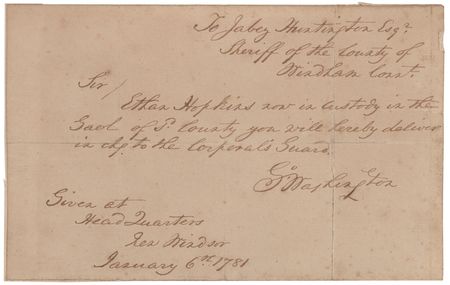 To Jabez Huntington Esqr.
Sheriff of the County of
Windham Connt.
Sir/
Ethan Hopkins now in custody in the
Gaol of sd. County you will hereby deliver
in chg. to the Corporals Guard.
Go Washington
Given at
Head Quarters
New Windsor
January 6th. 1781